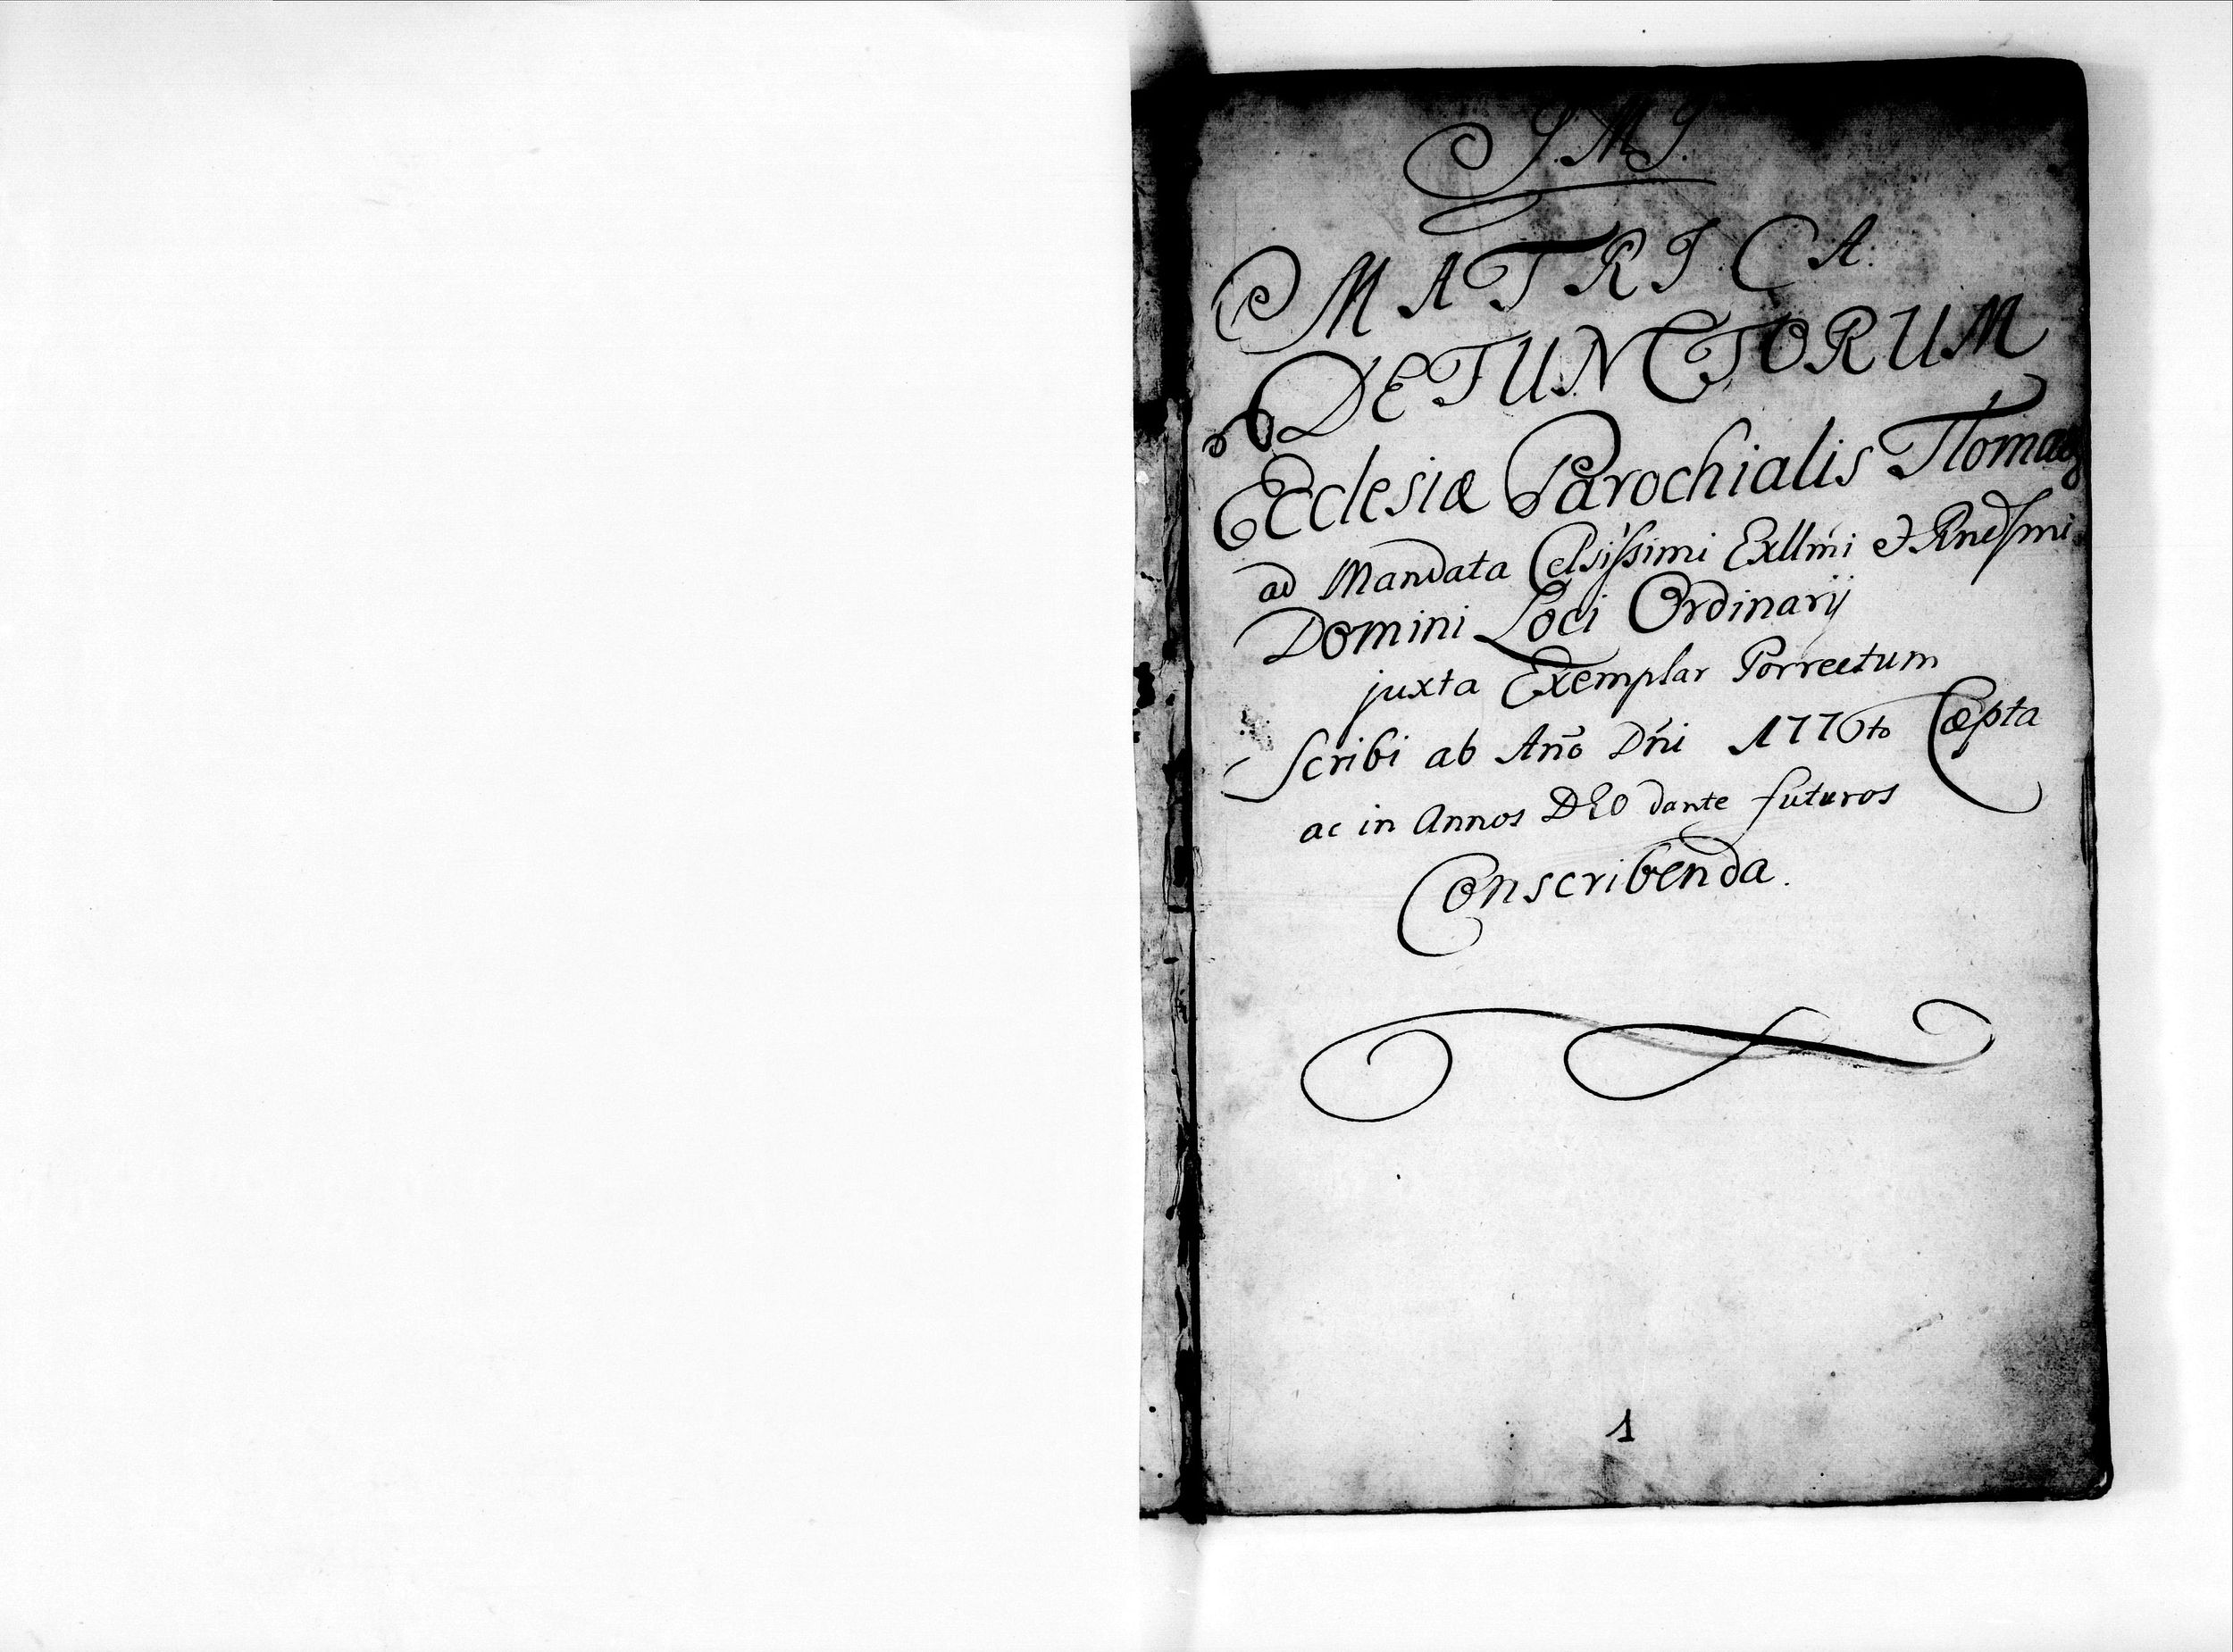 J.M.J.
MATRICA
DEFUNCTORUM
Ecclesiæ Parochialis Tlomacz
ad Mandata Celsissimi Exllm̃i & Rnedsmi
Domini Loci Ordinarij
juxta Exemplar Porrectum
Scribi ab Año Dñi 1776to Cæpta
ac in Annos DEO dante futuros
Conscribenda.
1